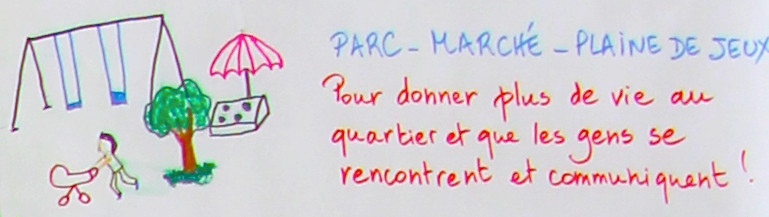 PARC - MARCHÉ - PLAINE DE JEUX
Pour donner plus de vie au
quartier et que les gens se
rencontrent et communiquent !